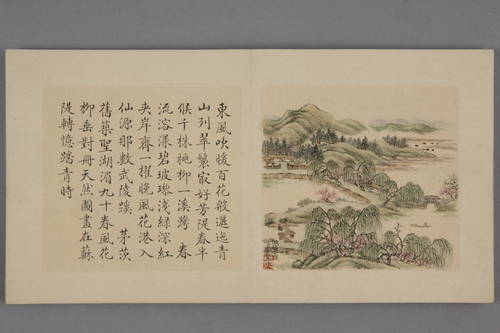 東風吹暖百花般邐迤青
山列翠鬟冣好芳隄春半
候千株桃柳一溪灣 春
流溶漾碧玻瓈淺綠深紅
夾岸齊一櫂晚風花港入
仙源那數武陵蹊 茅茨
舊築聖湖湄九十春風花
柳垂對冊天然圖畫在蘇
隄轉憶踏青時